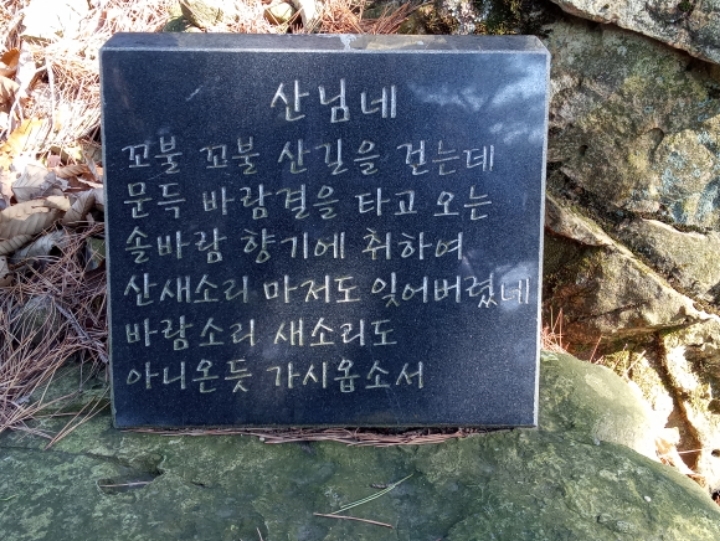 산님네
꼬불 꼬불 산길을 걷는데
문득 바람결을 타고 오는
솔바람 향기에 취하여
산새소리 마저도 잊어버렸네
바람소리 새소리도
아니온듯 가시옵소서